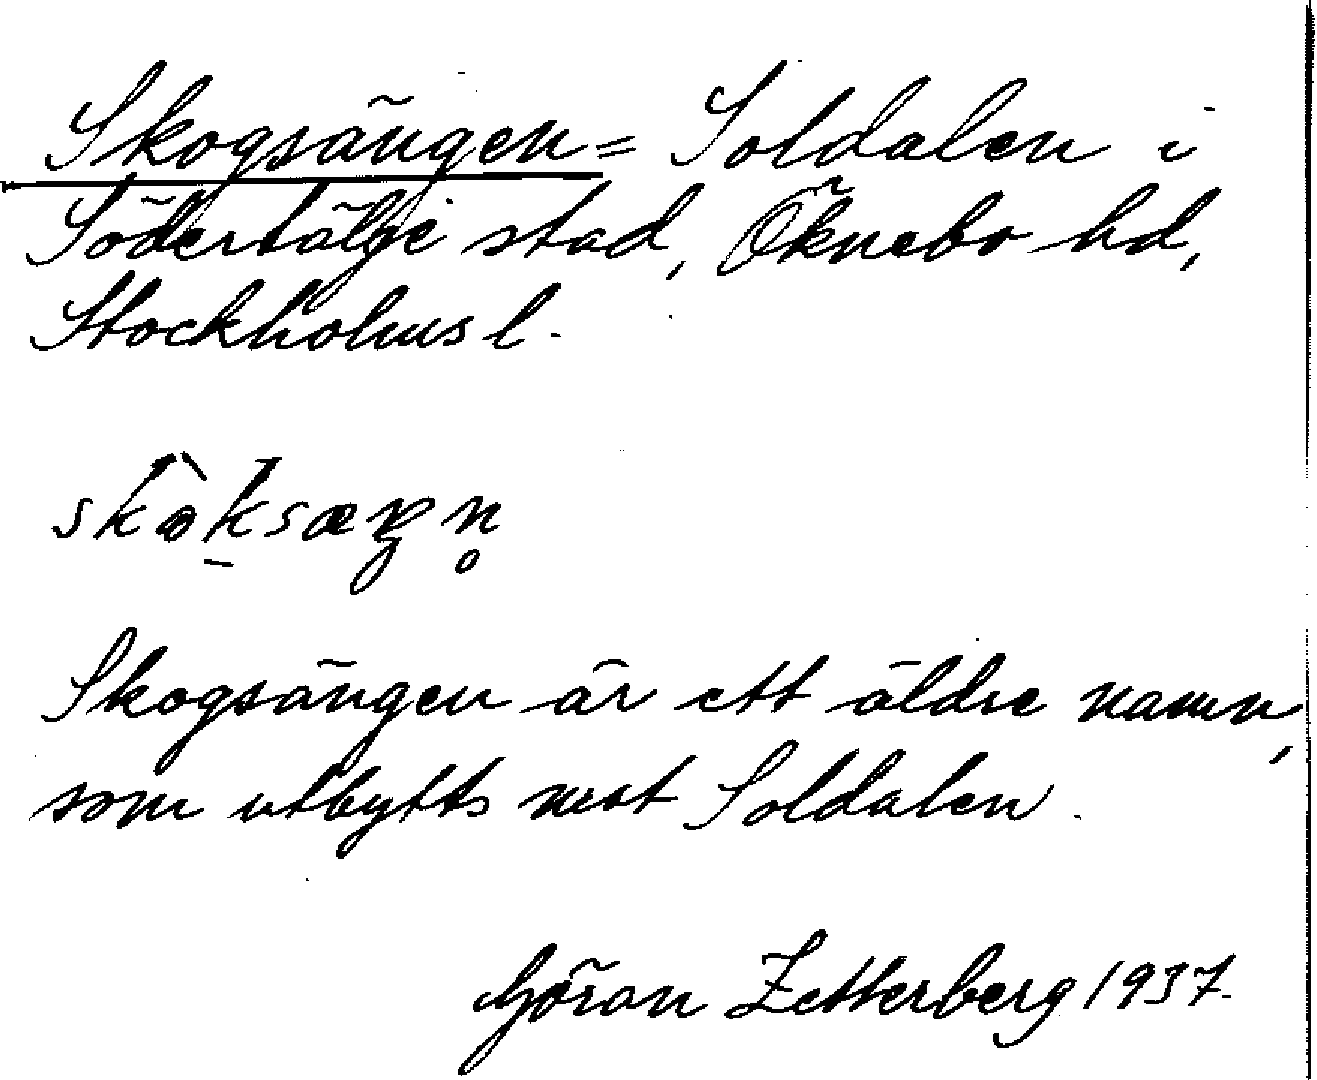 Skogsängen = Soldalen i
Södertälje stad, Öknebo hd,
Stockholms l.
Skogsängen är ett äldre namn,
som utbytts mot Soldalen.
Göran Zetterberg 1937.